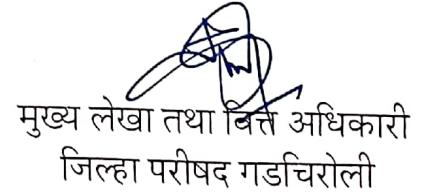 मुख्य लेखा तथा वित्त अधिकारी
जिल्हा परीषद गडचिरोली